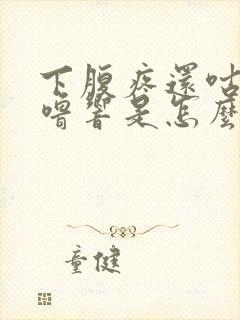 下腹疼還咕
嚕響是怎麼
童健